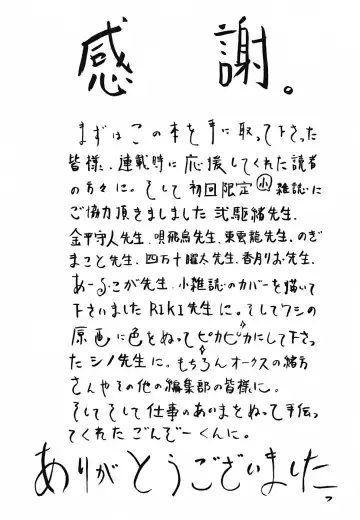 感謝。
まずはこの本を手に取って下さった
皆様、連載時に応援してくれた読者
の方々に。そして初回限定小雑誌に
ご協力頂きました弐駆緒先生、
金平守人先生、唄飛鳥先生、東雲龍先生、のぎ
まこと先生、四万十曜太先生、香月りお先生、
あーる・こが先生、小雑誌のカバーを描いて
下さいましたRIKI先生に。そしてワシの
原画に色をぬってピカピカにして下さっ
たシノ先生に。もちろんオークスの緒方
さんやその他の編集部の皆様に。
そしてそして仕事のあいまをぬって手伝っ
てくれたごんぞーくんに。
ありがとうございましたっ